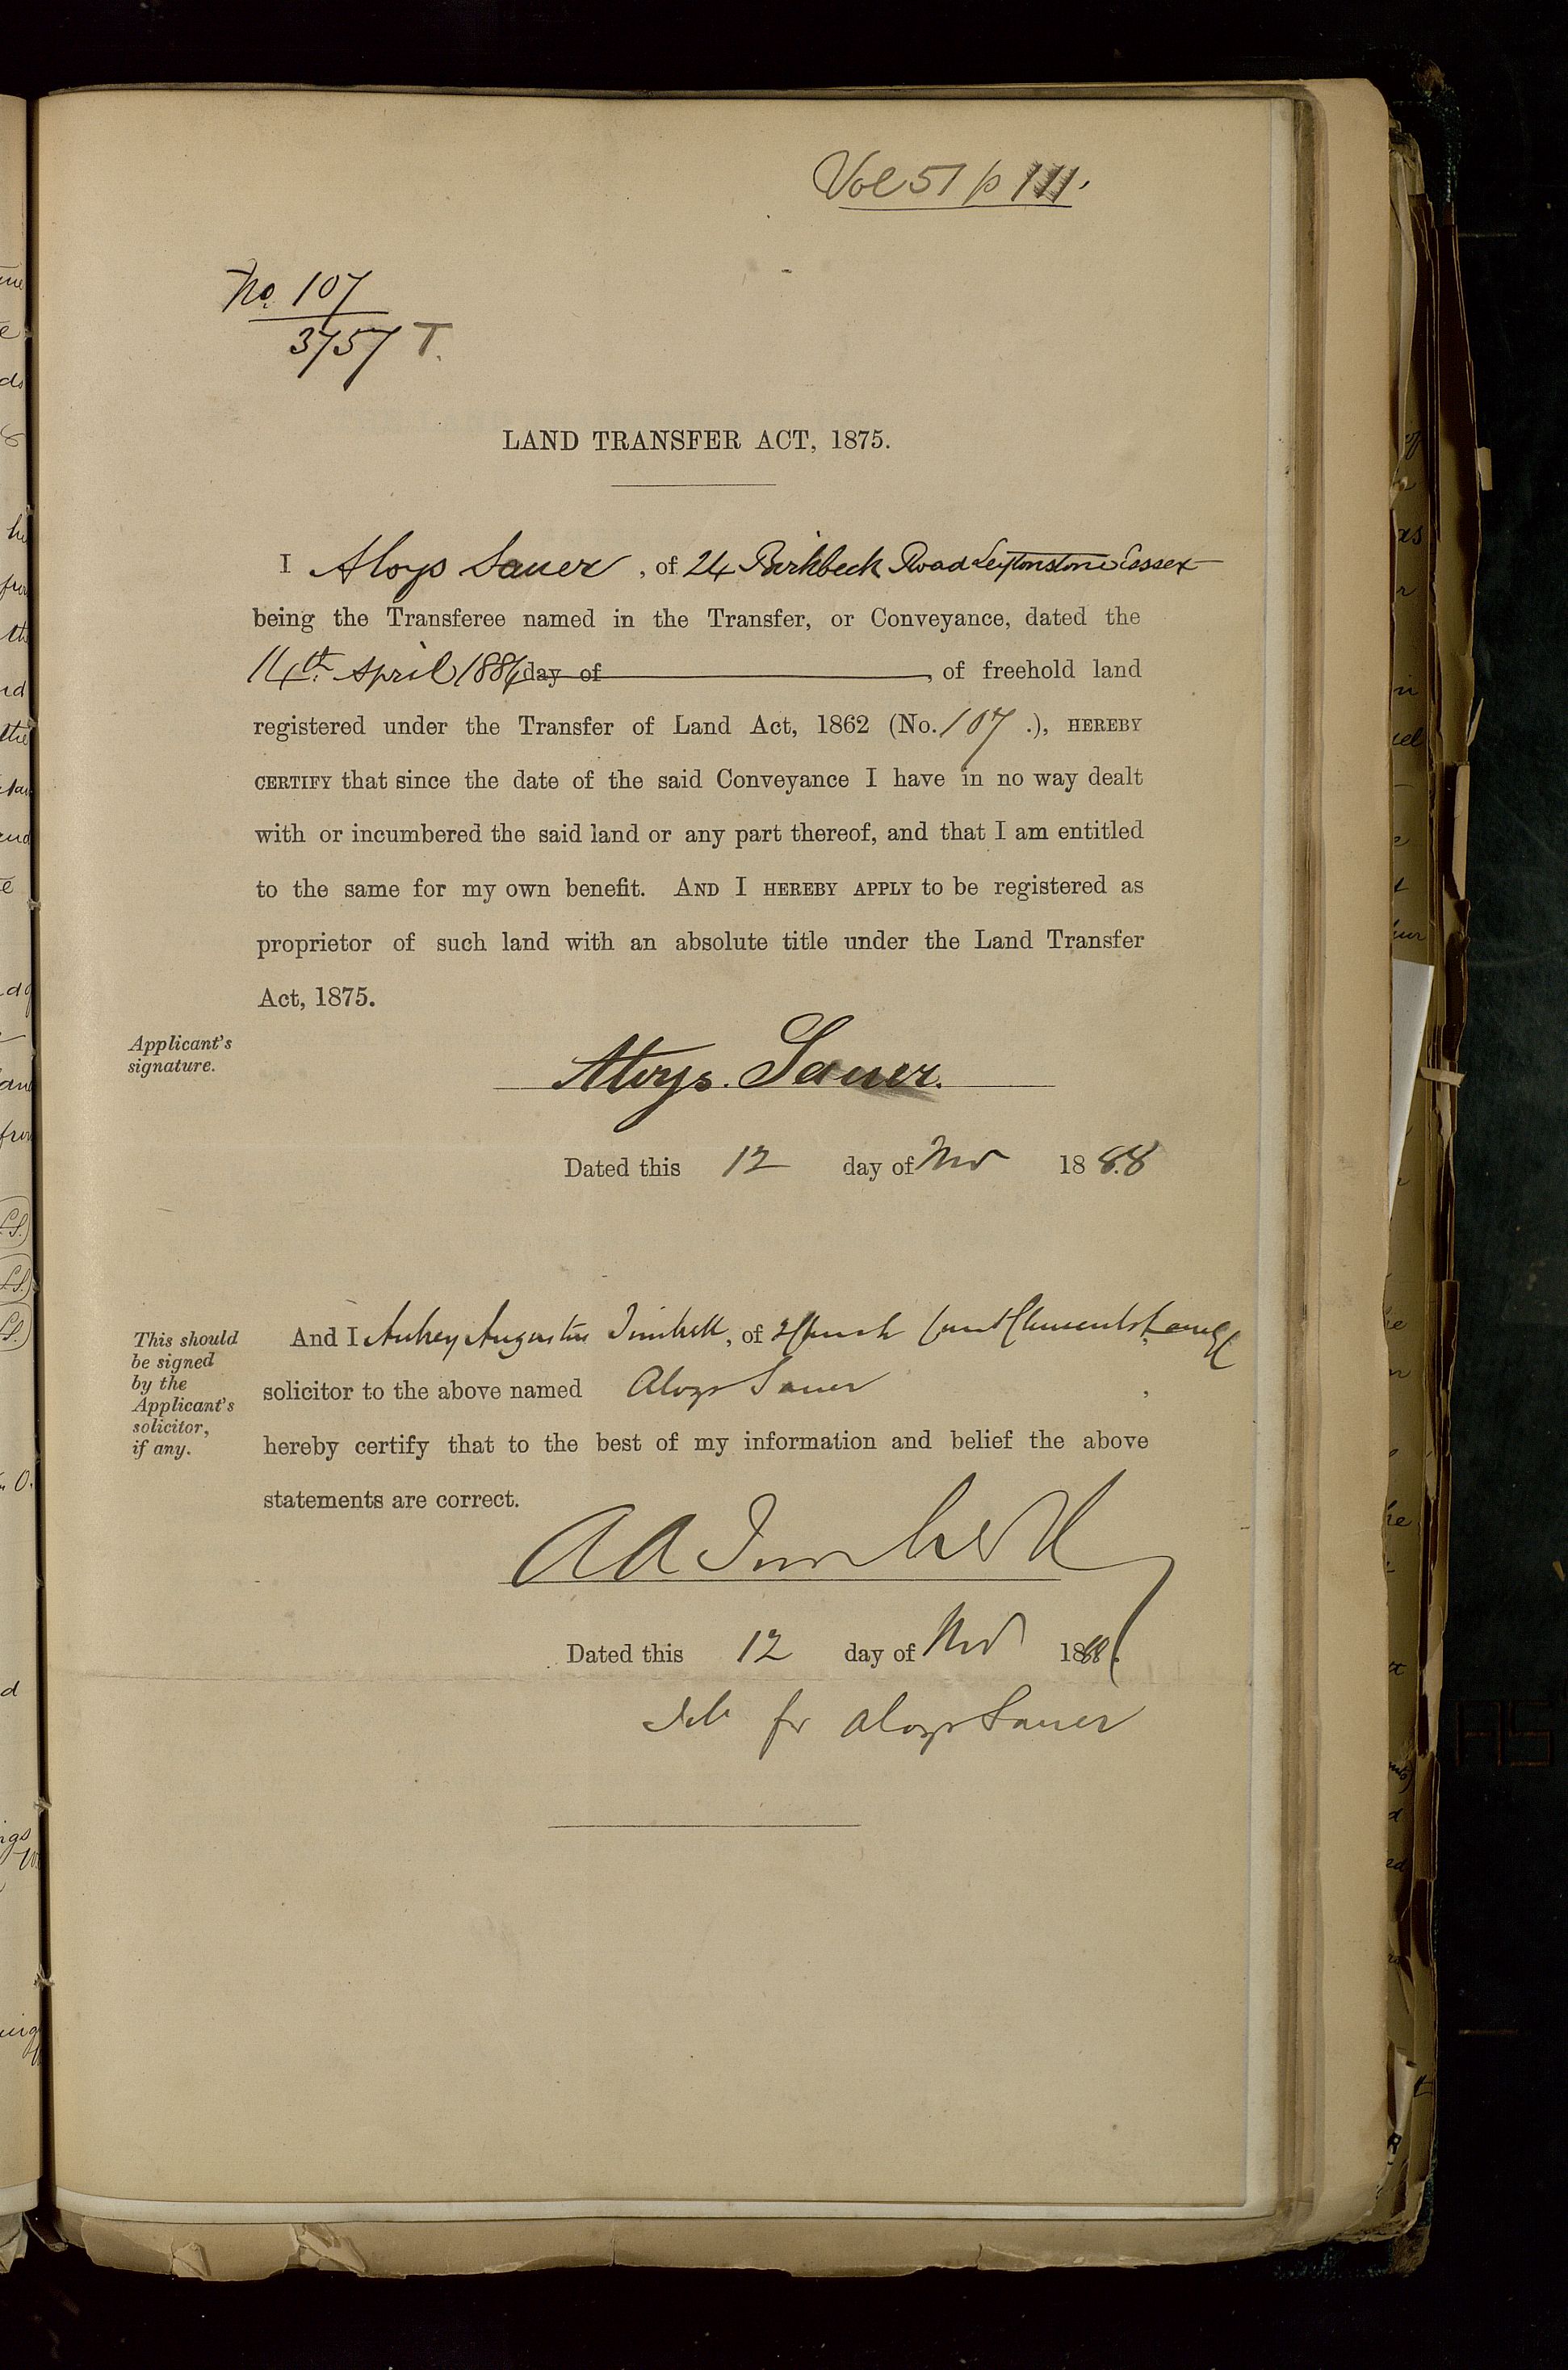 Vol 51 p 111.
No. 107
3757 T.
LAND TRANSFER ACT, 1875.
I Aloys Sauer, of 24 Birkbeck Road Leytonstone Essex
being the Transferee named in the Transfer, or Conveyance, dated the
14th. April 1886 day of , of freehold land
registered under the Transfer of Land Act, 1862 (No. 107 .), HEREBY
CERTIFY that since the date of the said Conveyance I have in no way dealt
with or incumbered the said land or any part thereof, and that I am entitled
to the same for my own benefit. AND I HEREBY APPLY to be registered as
proprietor of such land with an absolute title under the Land Transfer
Act, 1875.
Applicant's
signature.
Aloys. Sauer.
Dated this 12 day of Nov 1888
This should
be signed
by the
Applicant's
solicitor,
if any.
And I Aubrey Augustus, of 2 Church Court Clements Lane
solicitor to the above named Aloys Sauer ,
hereby certify that to the best of my information and belief the above
statements are correct.
A A
Dated this 12 day of Nov 1888.
for Aloys Sauer